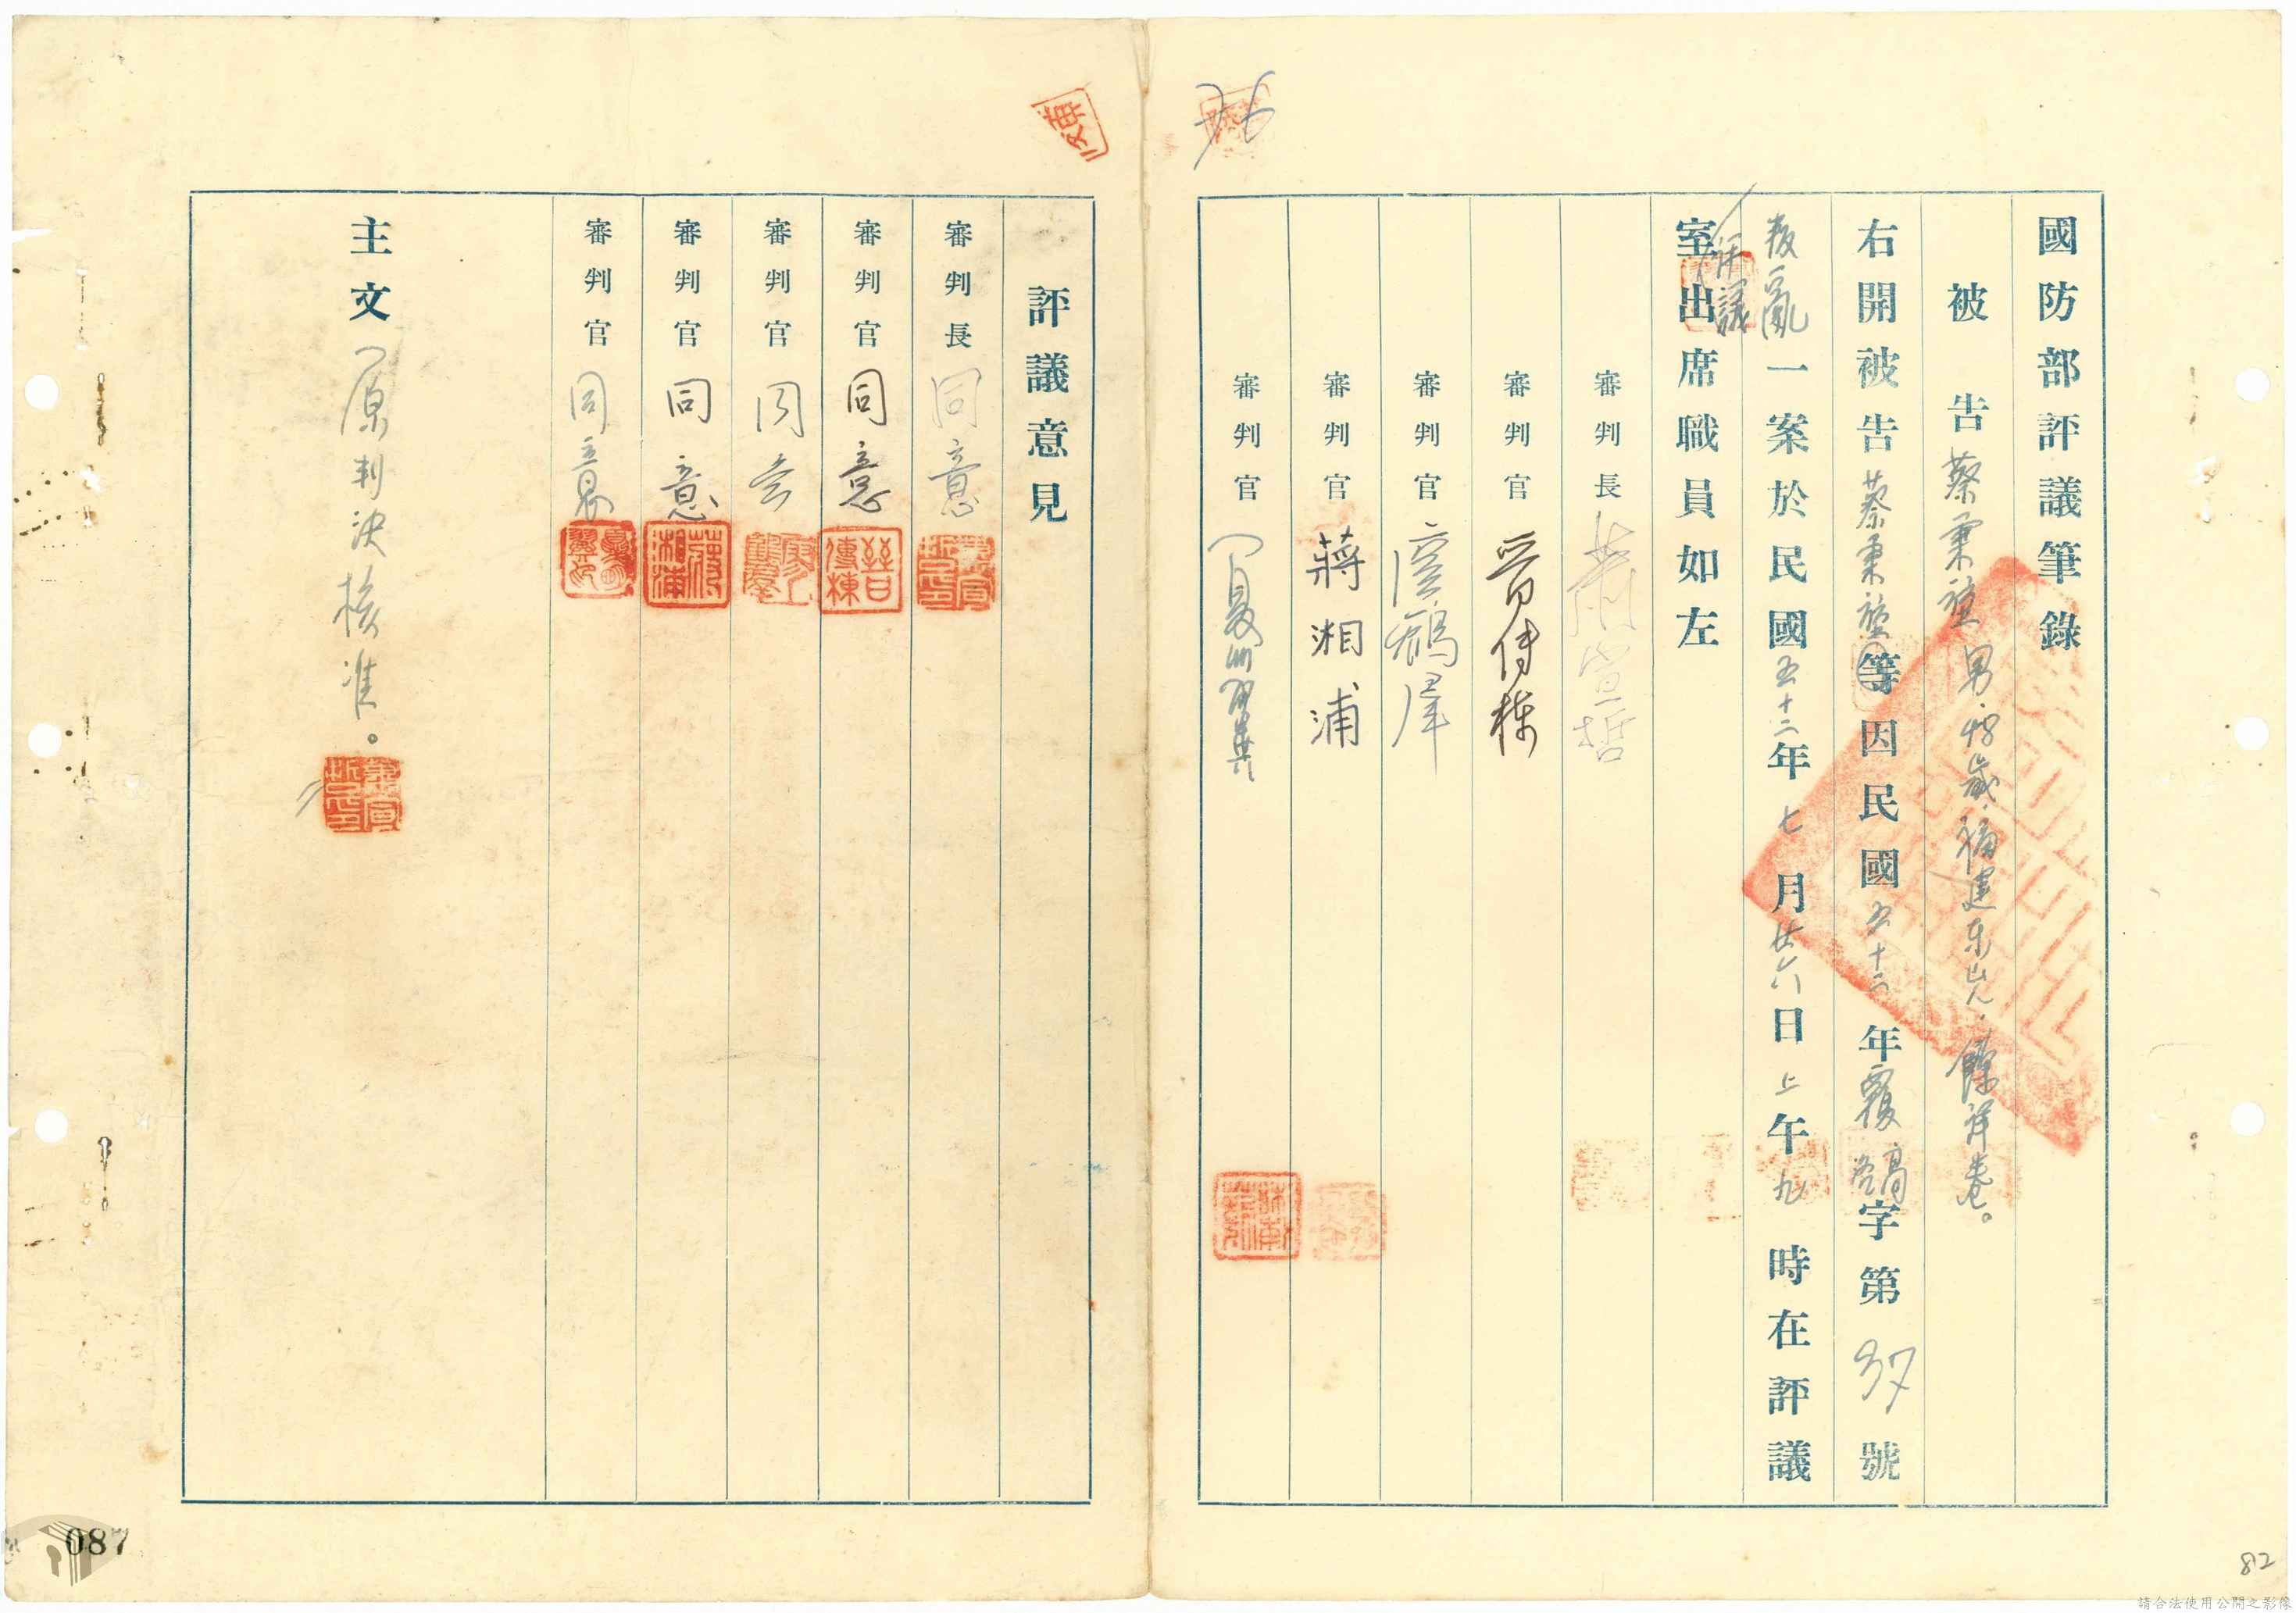 國防部評議筆錄
被告蔡秉堃男,48歲,福建東山人,餘詳卷。
右開被告蔡秉堃等因民國五十二年覆高字第37號
叛亂一案於民國五十二年七月廿六日上午九時在評議
評議
室出席職員如左
審判長蕭宣哲
審判官晉傳棟
審判官廖鶴羣
審判官蔣湘浦
審判官夏
76
評議意見
審判長同意
審判官同意
審判官同意
審判官同意
審判官同意
主文原判決核准。
087
82
請合法使用公開之影像